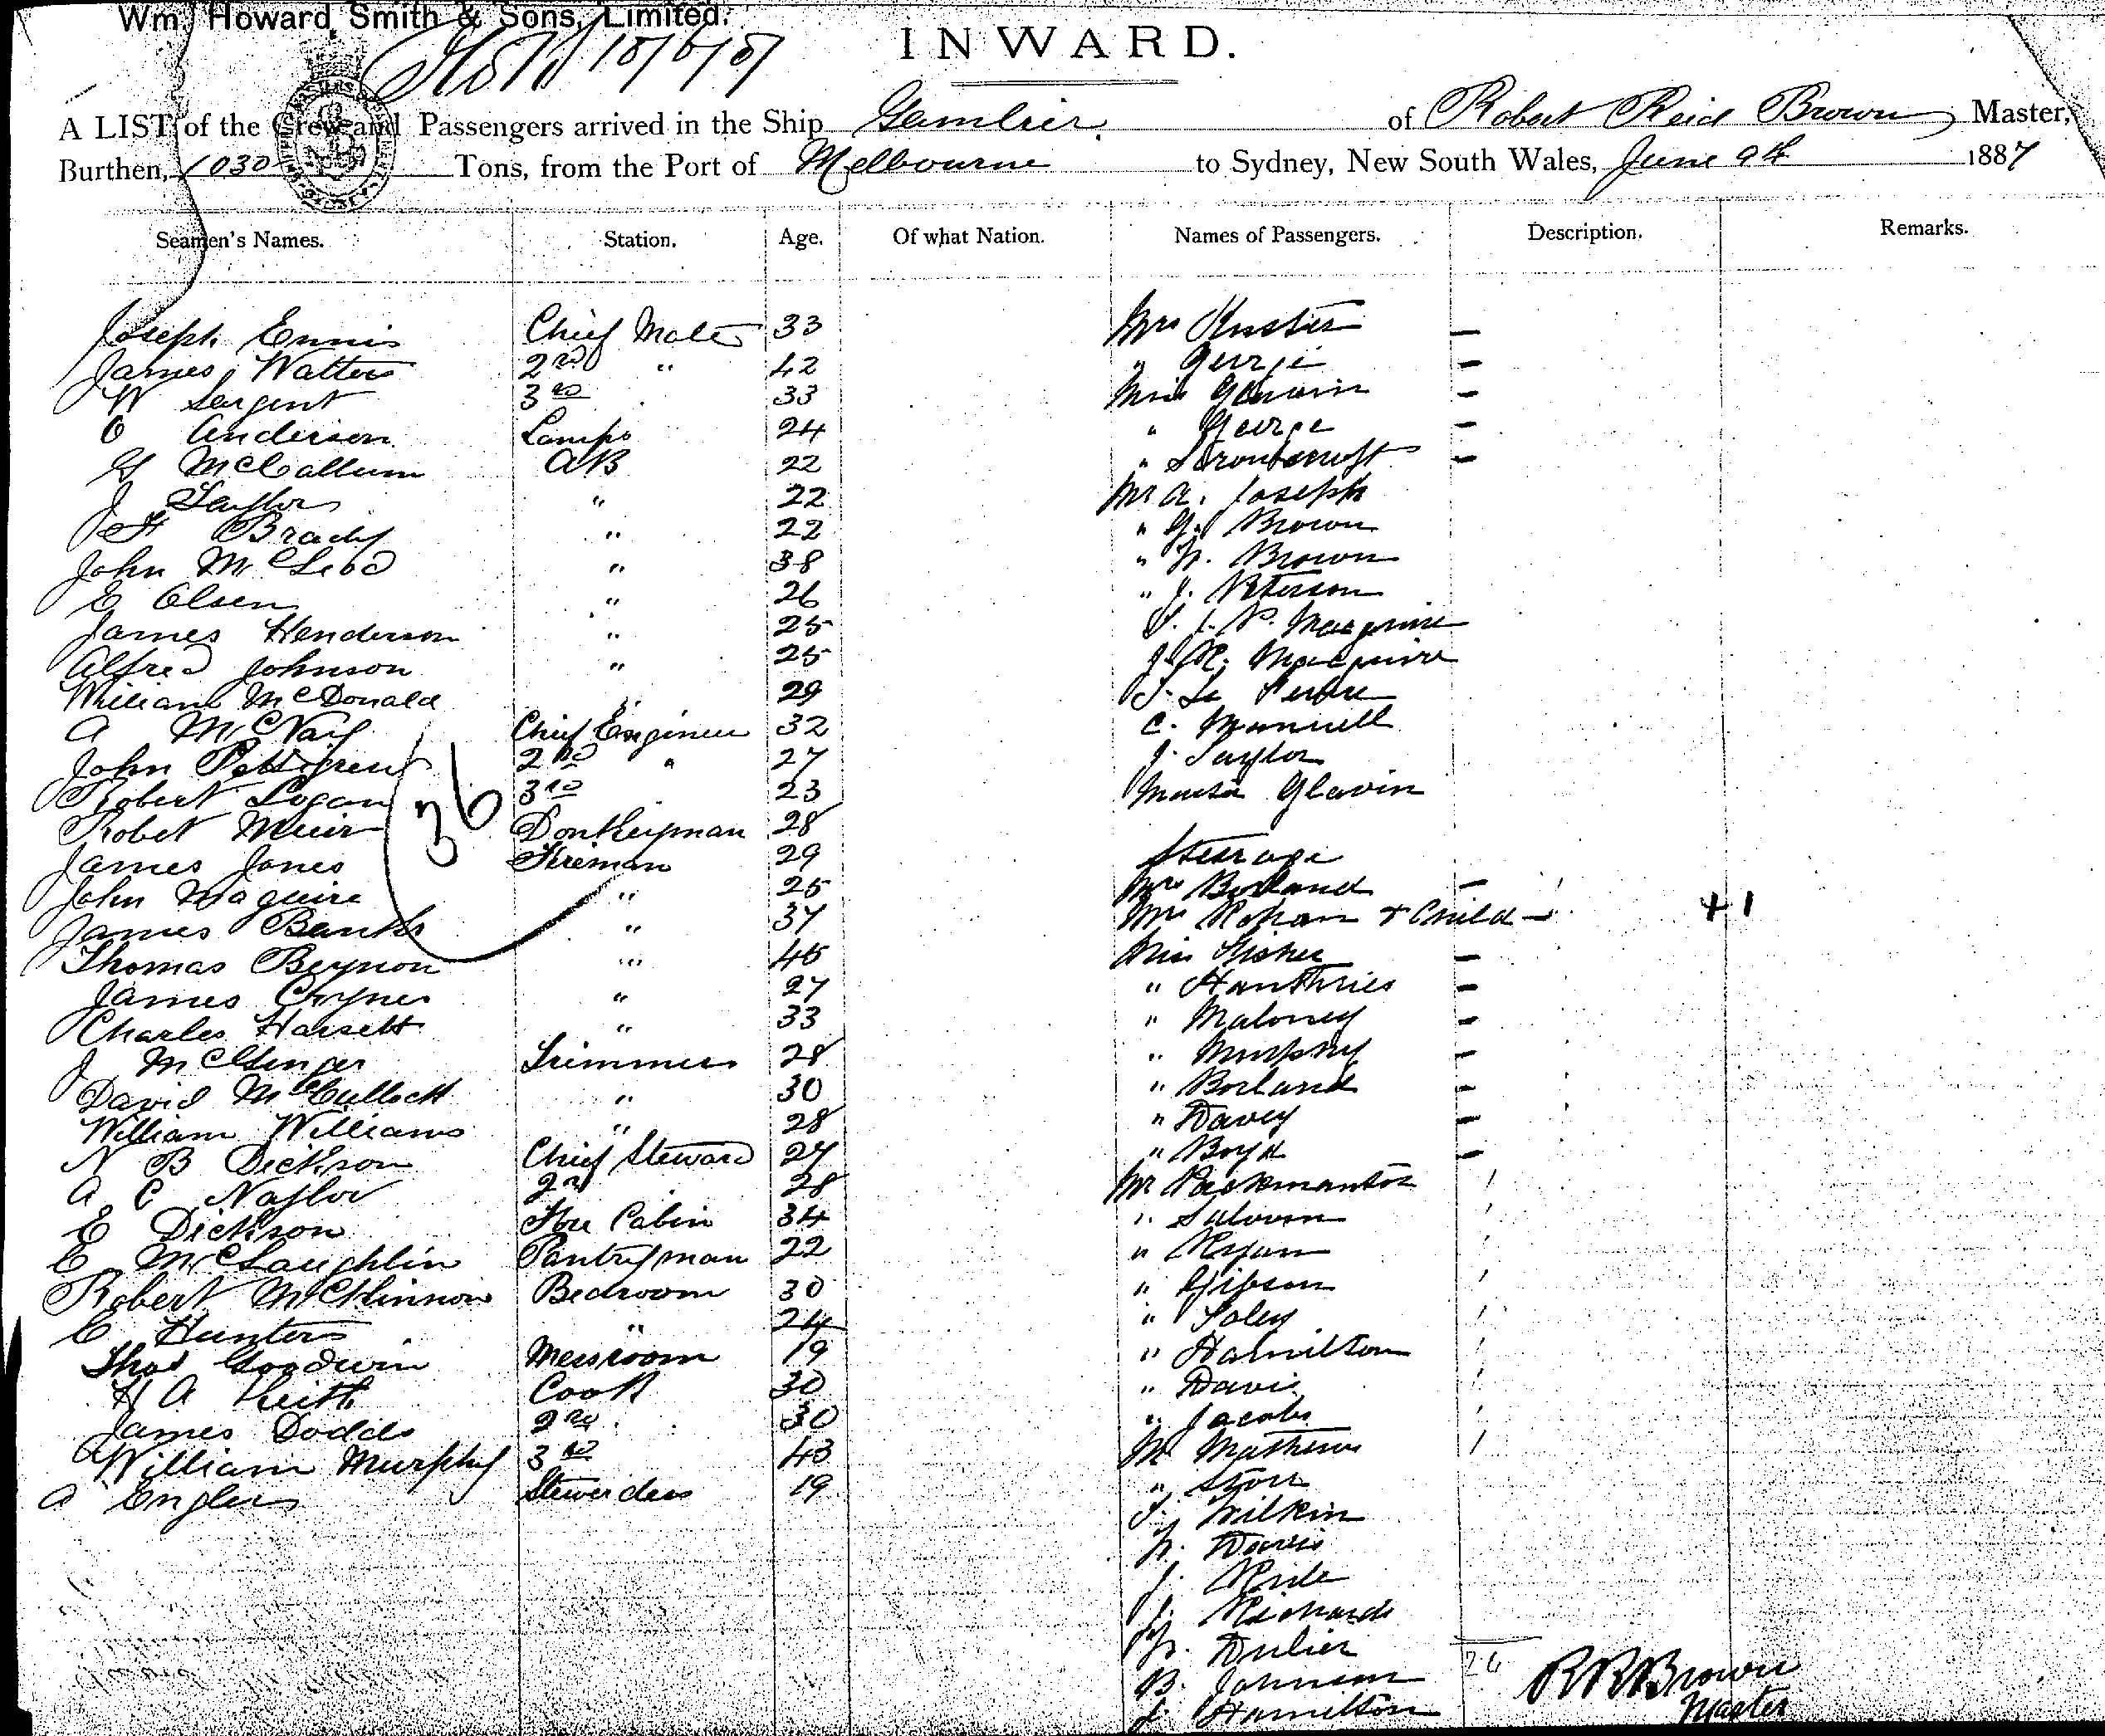 Wm. Howard Smith & Sons, Limited.
INWARD.
A LIST of the Crew and Passengers arrived in the Ship Gambier of Robert Reid Brown, Master,
Burthen, 1030 Tons, from the Port of Melbourne to Sydney, New South Wales, June 9th 1887
Seamen's Names. Station. Age. Of what Nation. Names of Passengers. Description. Remarks.
Joseph Ennis Chief Mate 33 Mrs —
James Watters 2nd " 42 " George —
W Sargent 3rd 33 Miss Glavin —
O Anderson Lamps 24 " George —
G McCallum AB 22 " —
J Taylor " 22 Mr A. Joseph
H Brady " 22 " G. Brown
John McLeod " 38 " H. Brown
E Olsen " 26 " J. Peterson
James Henderson " 25
Alfred Johnson " 25
William McDonald " 29
A McNay Chief Engineer 32 C.
John Pettigrew 2nd " 27 J. Taylor
Robert Logan 3rd 23 Glavin
36
Robet Muir Donkeyman 28
James Jones Fireman 29 Steerage
John Maguire " 25 Mrs Borland —
James Banks " 37 Mrs Rohan + Child — +1
Thomas Beynon " 45 Miss Fisher —
James " 27 " Humthries —
Charles Hassett " 33 " Maloney —
J Trimmers 28 " Murphy —
David McCulloch " 30 " Borland —
William Williams " 28 " Davey —
N B Dickson Chief Steward 27 " Boyd —
A C Naylor 2nd 28 Mr
E Dickson Fore Cabin 34 "
C McLaughlin Pantryman 22 " Ryan
Robert McKinnon Bedroom 30 " Gibson
C Hunter " 24 "
Thos Goodwin Messroom 19 " Hamilton
H A Keith Cook 30 " Davis
James Dodds 2nd 30 " Jacobs
William Murphy 3rd 43 Mr Mathews
A Stewardess 19 " Storr
Wilkin
H. Davis
J.
J. Richards
H.
B. Johnson 26 R R Brown
J. Hamilton Master